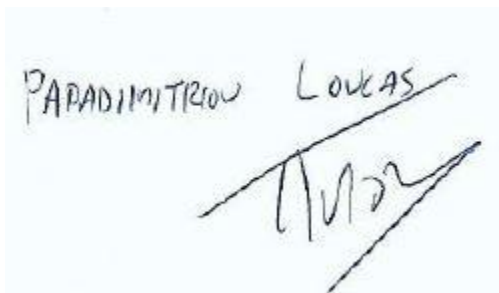 PAPADIMITRIOU LOUCAS